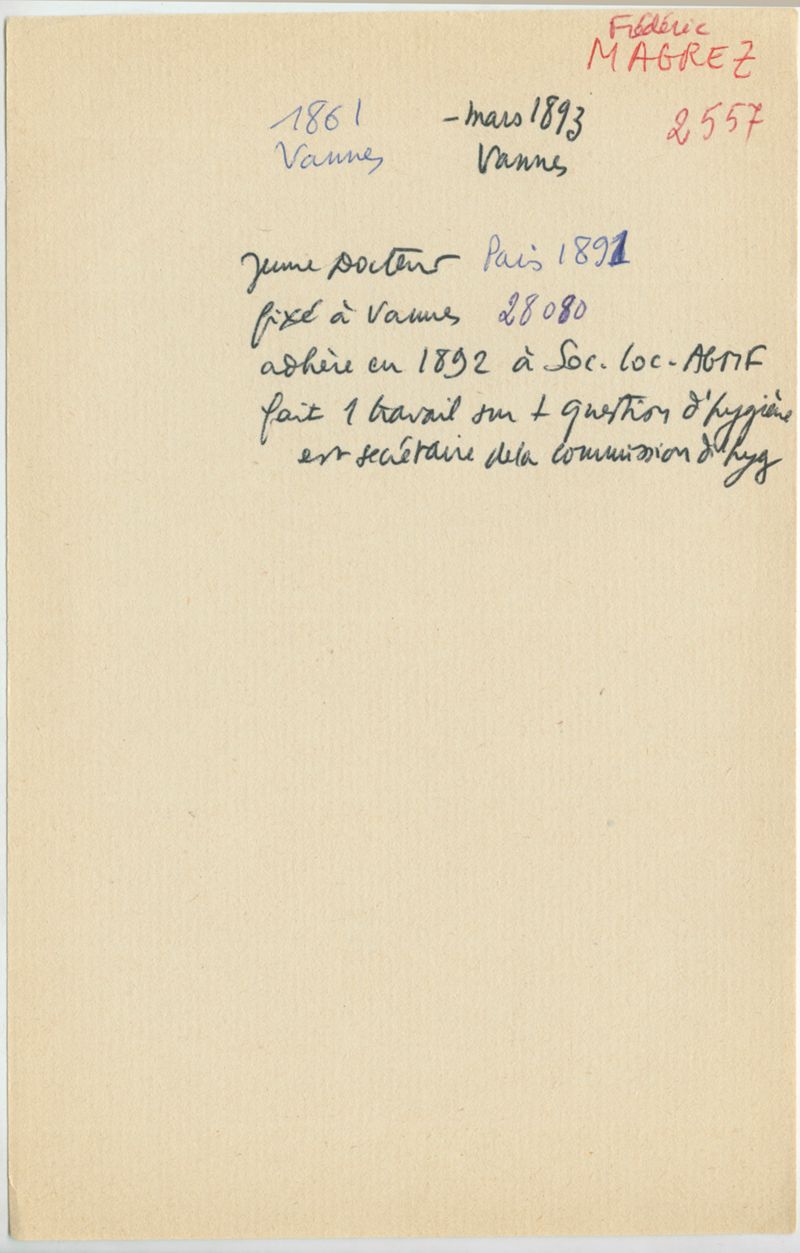 Frédéric
MAGREZ
1861 - mars 1893 2557
Vannes Vannes
jeune Docteur Paris 1891
fixé à Vannes 28080
adhère en 1892 à Soc. loc. AGMF
fait 1 travail sur + question d'hygiène
est secrétaire de la commission d'hyg